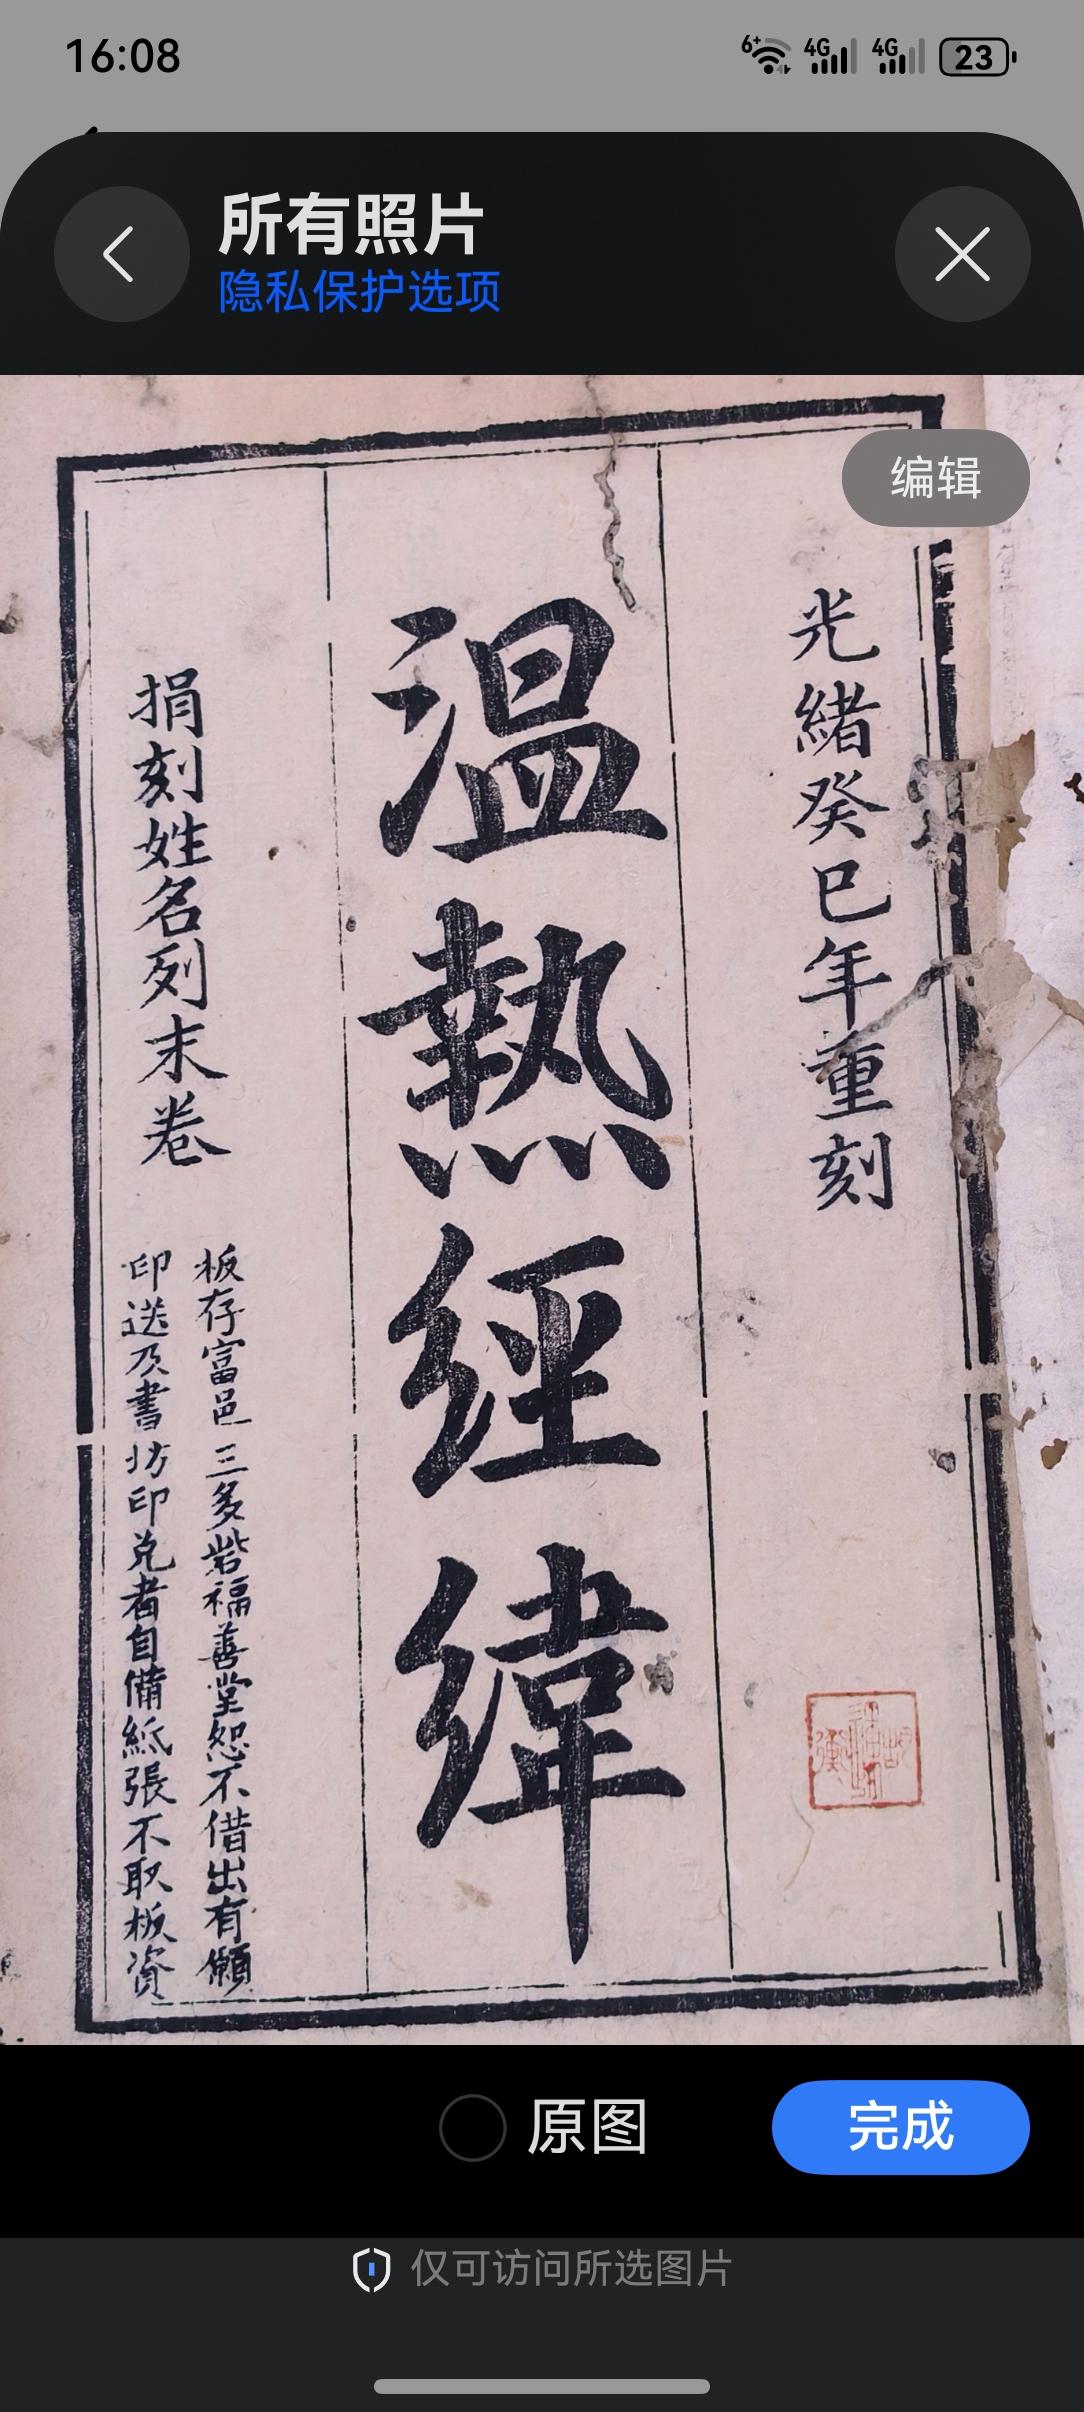 16:08
6+ 4G 4G 23
所有照片
隐私保护选项
编辑
光緒癸巳年重刻
温熱經緯
捐刻姓名列末卷
板存富邑三多砦福善堂恕不借出有願
印送及書坊印兌者自備紙張不取板資
原图
完成
仅可访问所选图片